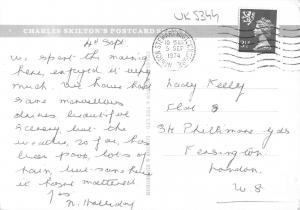 UK 5344
CHARLES SKILTON'S POSTCARD
5 SEP
1974
4th Sept.
We spent the morning
here, enjoyed it very
much. We have had
some marvellous
drives, beautiful
scenery, but the
weather, so far, has
been poor, lots of
rain, but sure here
it hasnt mattered
Lucy Kelly
Flat 8
34 Phillimore Gdns
Kensington
London.
W. 8